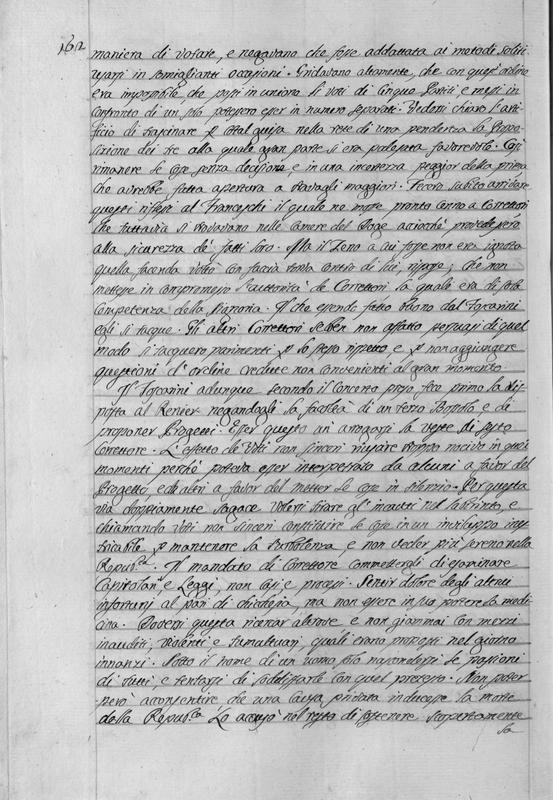 162
maniera di votare, e negavano che fosse addattata ai metodi soliti
usarsi in somiglianti occasioni. Gridavano altamente, che con quest'ordine
era impossibile, che posti in unione li voti di cinque Partiti e messi in
confronto di un solo potessero esser in numero separati. Vedersi chiaro l'arti-
ficio di trascinare p cotal guisa nella rete di una pendenza la Propo-
sizione dei tre alla quale gran parte si era palesata favorevole. Così
rimanere le cose senza decisione, e in una incertezza peggior della prima
che avrebbe fatta apertura a travagli maggiori. Fecero subito avvisare
questi riflessi al Franceschi il quale ne portò pronto cenno a Correttori
che tuttavia si trovavano nelle Camere del Doge acciocchè provedessero
alla sicurezza de' fatti loro. Ma il Zeno a cui forse non era ignota
quella facenda voltò con faccia tonta contro di lui, rispose, che non
mettesse in compromesso l'autorità de Correttori la quale era di sola
Competenza della Signoria. Il che essendo fatto buono dal Foscarini
egli si tacque. Gli altri Correttori sebben non affatto persuasi di quel
modo si tacquero parimenti p lo stesso rispetto, e p non aggiungere
questioni d'ordine credute non convenienti al gran momento.
Il Foscarini adunque secondo il Concerto preso fece primo la ris-
posta al Renier negandogli la facoltà di un terzo Bossolo, e di
proponer Progetti. Esser questo un' arrogarsi la veste di sesto
Correttore. L'effetto de Voti non sinceri riuscire troppo nocivo in quei
momenti perchè poteva esser interpretato da alcuni a favor del
Progetto, e da altri a favor del metter le cose in silenzio. Per questa
via doppiamente sagace volersi tirare gl' incauti nel laberinto, e
chiamando Voti non sinceri constituire le cose in un inviluppo ines-
tricabile p mantenere la turbolenza, e non veder più sereno nella
Repub.ca. Il mandato di Correttore commetterli di esaminare
Capitolari, e Leggi, non casi e processi. Sentir dolore degli altrui
infortunj al pari di chicchesia, ma non essere in suo potere la medi-
cina. Doversi questa ricercar altrove e non giammai con mezzi
inauditi, violenti e tumultuarj, quali erano proposti nel giorno
innanzi. Sotto il nome di un uomo solo nascondersi le passioni
di tutti, e tentarsi di soddisfarle con quel pretesto. Non poter
però acconsentire che una causa privata inducesse la morte
della Repub.ca. Lo accusò nel resto di sostenere scopertamente
la